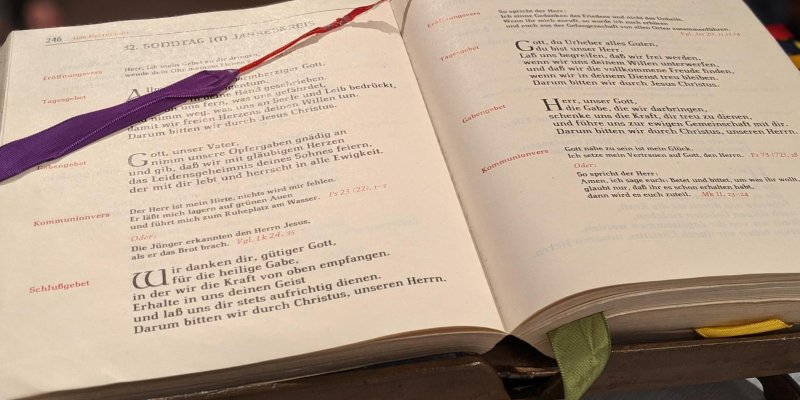 246
32. SONNTAG IM JAHRESKREIS
Eröffnungsvers
Herr, laß mein Gebet zu dir dringen,
wende dein Ohr meinem Flehen zu.
Tagesgebet
barmherziger Gott.
deine Hand geschrieben.
von uns fern, was uns gefährdet,
und nimm weg, was uns an Seele und Leib bedrückt,
damit wir freien Herzens deinen Willen tun.
Darum bitten wir durch Jesus Christus.
Gabengebet
Gott, unser Vater,
nimm unsere Opfergaben gnädig an
und gib, daß wir mit gläubigem Herzen
das Leidensgeheimnis deines Sohnes feiern,
der mit dir lebt und herrscht in alle Ewigkeit.
Kommunionvers
Der Herr ist mein Hirte, nichts wird mir fehlen.
Er läßt mich lagern auf grünen Auen
und führt mich zum Ruheplatz am Wasser. Ps 23 (22), 1-2
Oder:
Die Jünger erkannten den Herrn Jesus,
als er das Brot brach. Vgl. Lk 24, 35
Schlußgebet
Wir danken dir, gütiger Gott,
für die heilige Gabe,
in der wir die Kraft von oben empfangen.
Erhalte in uns deinen Geist
und laß uns dir stets aufrichtig dienen.
Darum bitten wir durch Christus, unseren Herrn.
Eröffnungsvers
So spricht der Herr:
Ich sinne Gedanken des Friedens und nicht des Unheils.
Wenn ihr mich anruft, so werde ich euch erhören
und euch aus der Gefangenschaft von allen Orten zusammenführen.
Tagesgebet
Gott, du Urheber alles Guten,
du bist unser Herr.
Laß uns begreifen, daß wir frei werden,
wenn wir uns deinem Willen unterwerfen,
und daß wir die vollkommene Freude finden,
wenn wir in deinem Dienst treu bleiben.
Darum bitten wir durch Jesus Christus.
Gabengebet
Herr, unser Gott,
die Gabe, die wir darbringen,
schenke uns die Kraft, dir treu zu dienen,
und führe uns zur ewigen Gemeinschaft mit dir.
Darum bitten wir durch Christus, unseren Herrn.
Kommunionvers
Gott nahe zu sein ist mein Glück.
Ich setze mein Vertrauen auf Gott, den Herrn. Ps 73 (72), 28
Oder:
So spricht der Herr:
Amen, ich sage euch: Betet und bittet, um was ihr wollt,
glaubt nur, daß ihr es schon erhalten habt,
dann wird es euch zuteil. Mk 11, 23-24